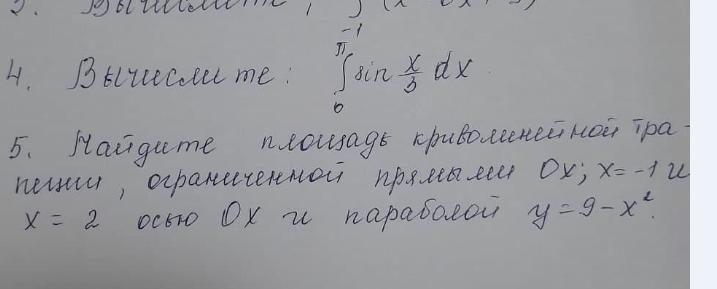 3. Вычислите:
4. Вычислите: ∫₀^π sin x/3 dx
5. Найдите площадь криволинейной тра-
пеции, ограниченной прямыми Ox; x=-1 и
x = 2 осью Ox и параболой y=9-x².